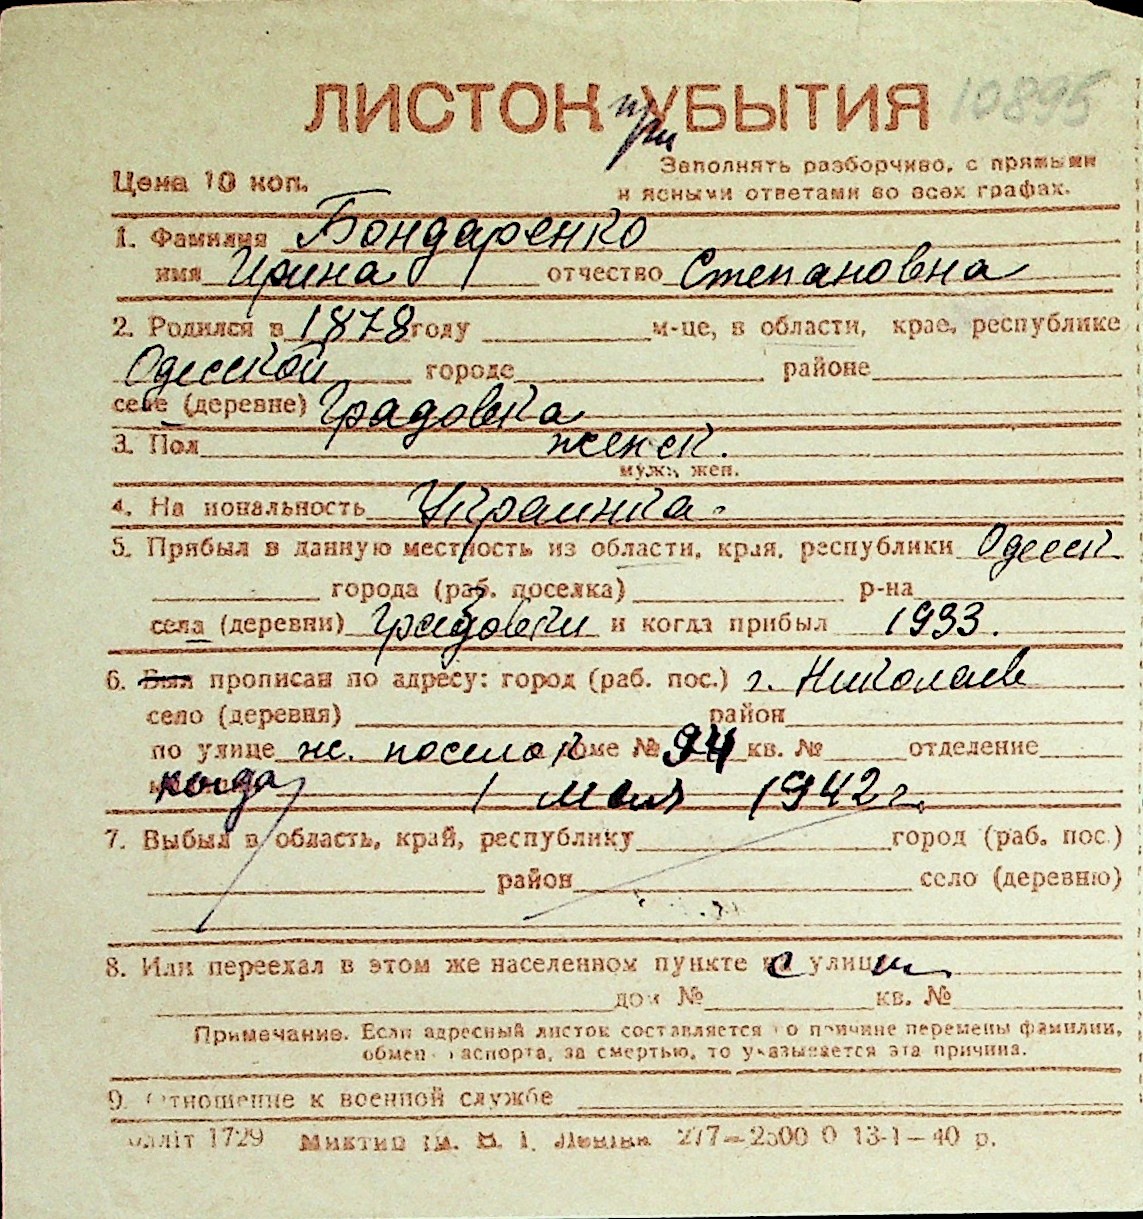 ЛИСТОК при УБЫТИЯ 10895
Цена 10 коп.
Заполнять разборчиво, с прямыми
и ясными ответами во всех графах.
1. Фамилия Бондаренко
имя Ирина отчество Степановна
2. Родился в 1878 году м-це, в области, крае, республике
Одесской городе районе
селе (деревне) Градовка
3. Пол женск.
мужч. жен.
4. Национальность Украинка.
5. Прибыл в данную местность из области, края, республики Одесск
города (раб. поселка) р-на
села (деревни) Градовки и когда прибыл 1933.
6. Был прописан по адресу: город (раб. пос.) г. Николаев
село (деревня) район
по улице ж. поселок доме № 94 кв. № отделение
когда 1 мая 1942 г.
7. Выбыл в область, край, республику город (раб. пос.)
район село (деревню)
8. Или переехал в этом же населенном пункте с улицы
дом № кв. №
Примечание. Если адресный листок составляется по причине перемены фамилии,
обмена паспорта, за смертью, то указывается эта причина.
9. Отношение к военной службе
1729 277—2500 0 13-1—40 р.